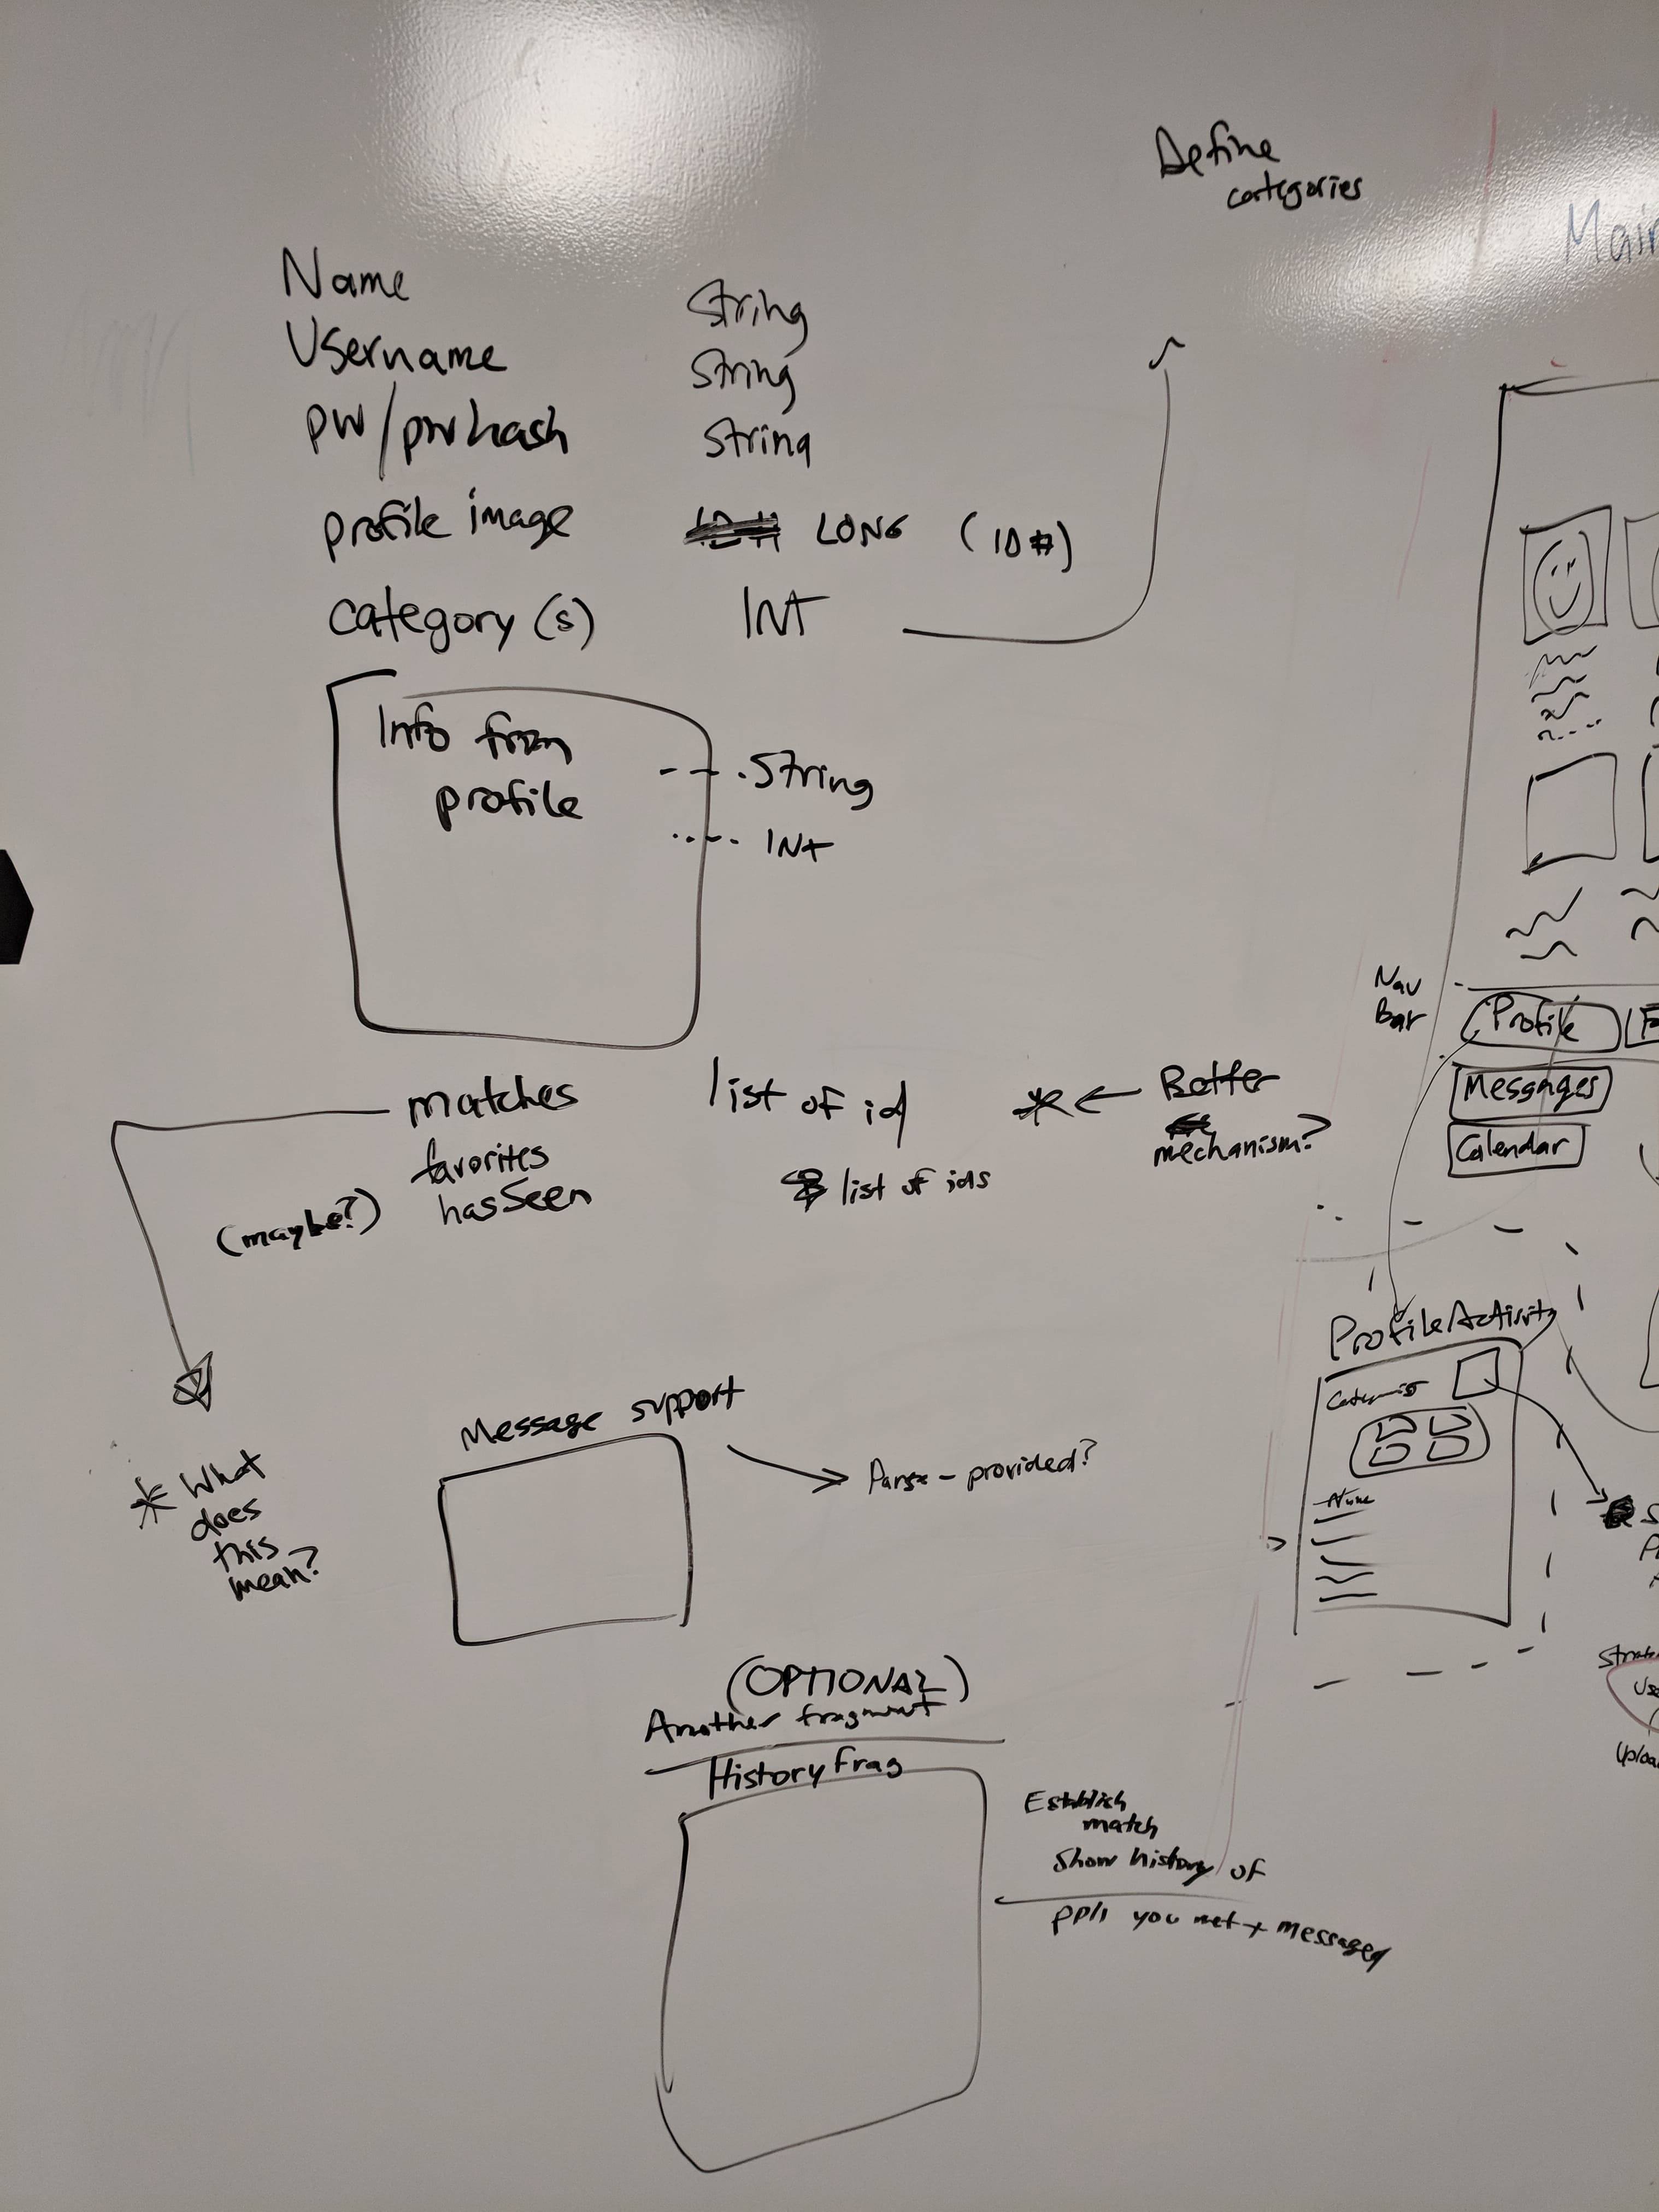 Define
categories
Name String
Username String
pw/pwhash String
profile image LONG (ID#)
category(s) INT
Info from
profile
String
INT
matches list of id
favorites
hasSeen list of ids
(maybe?)
* ← Better
mechanism?
* What
does
this
mean?
Message support
Parse - provided?
(OPTIONAL)
Another fragment
HistoryFrag
Establish
match
Show history of
you met + messaged
Nav
Bar
Profile
Messages
Calendar
ProfileActivity
Name